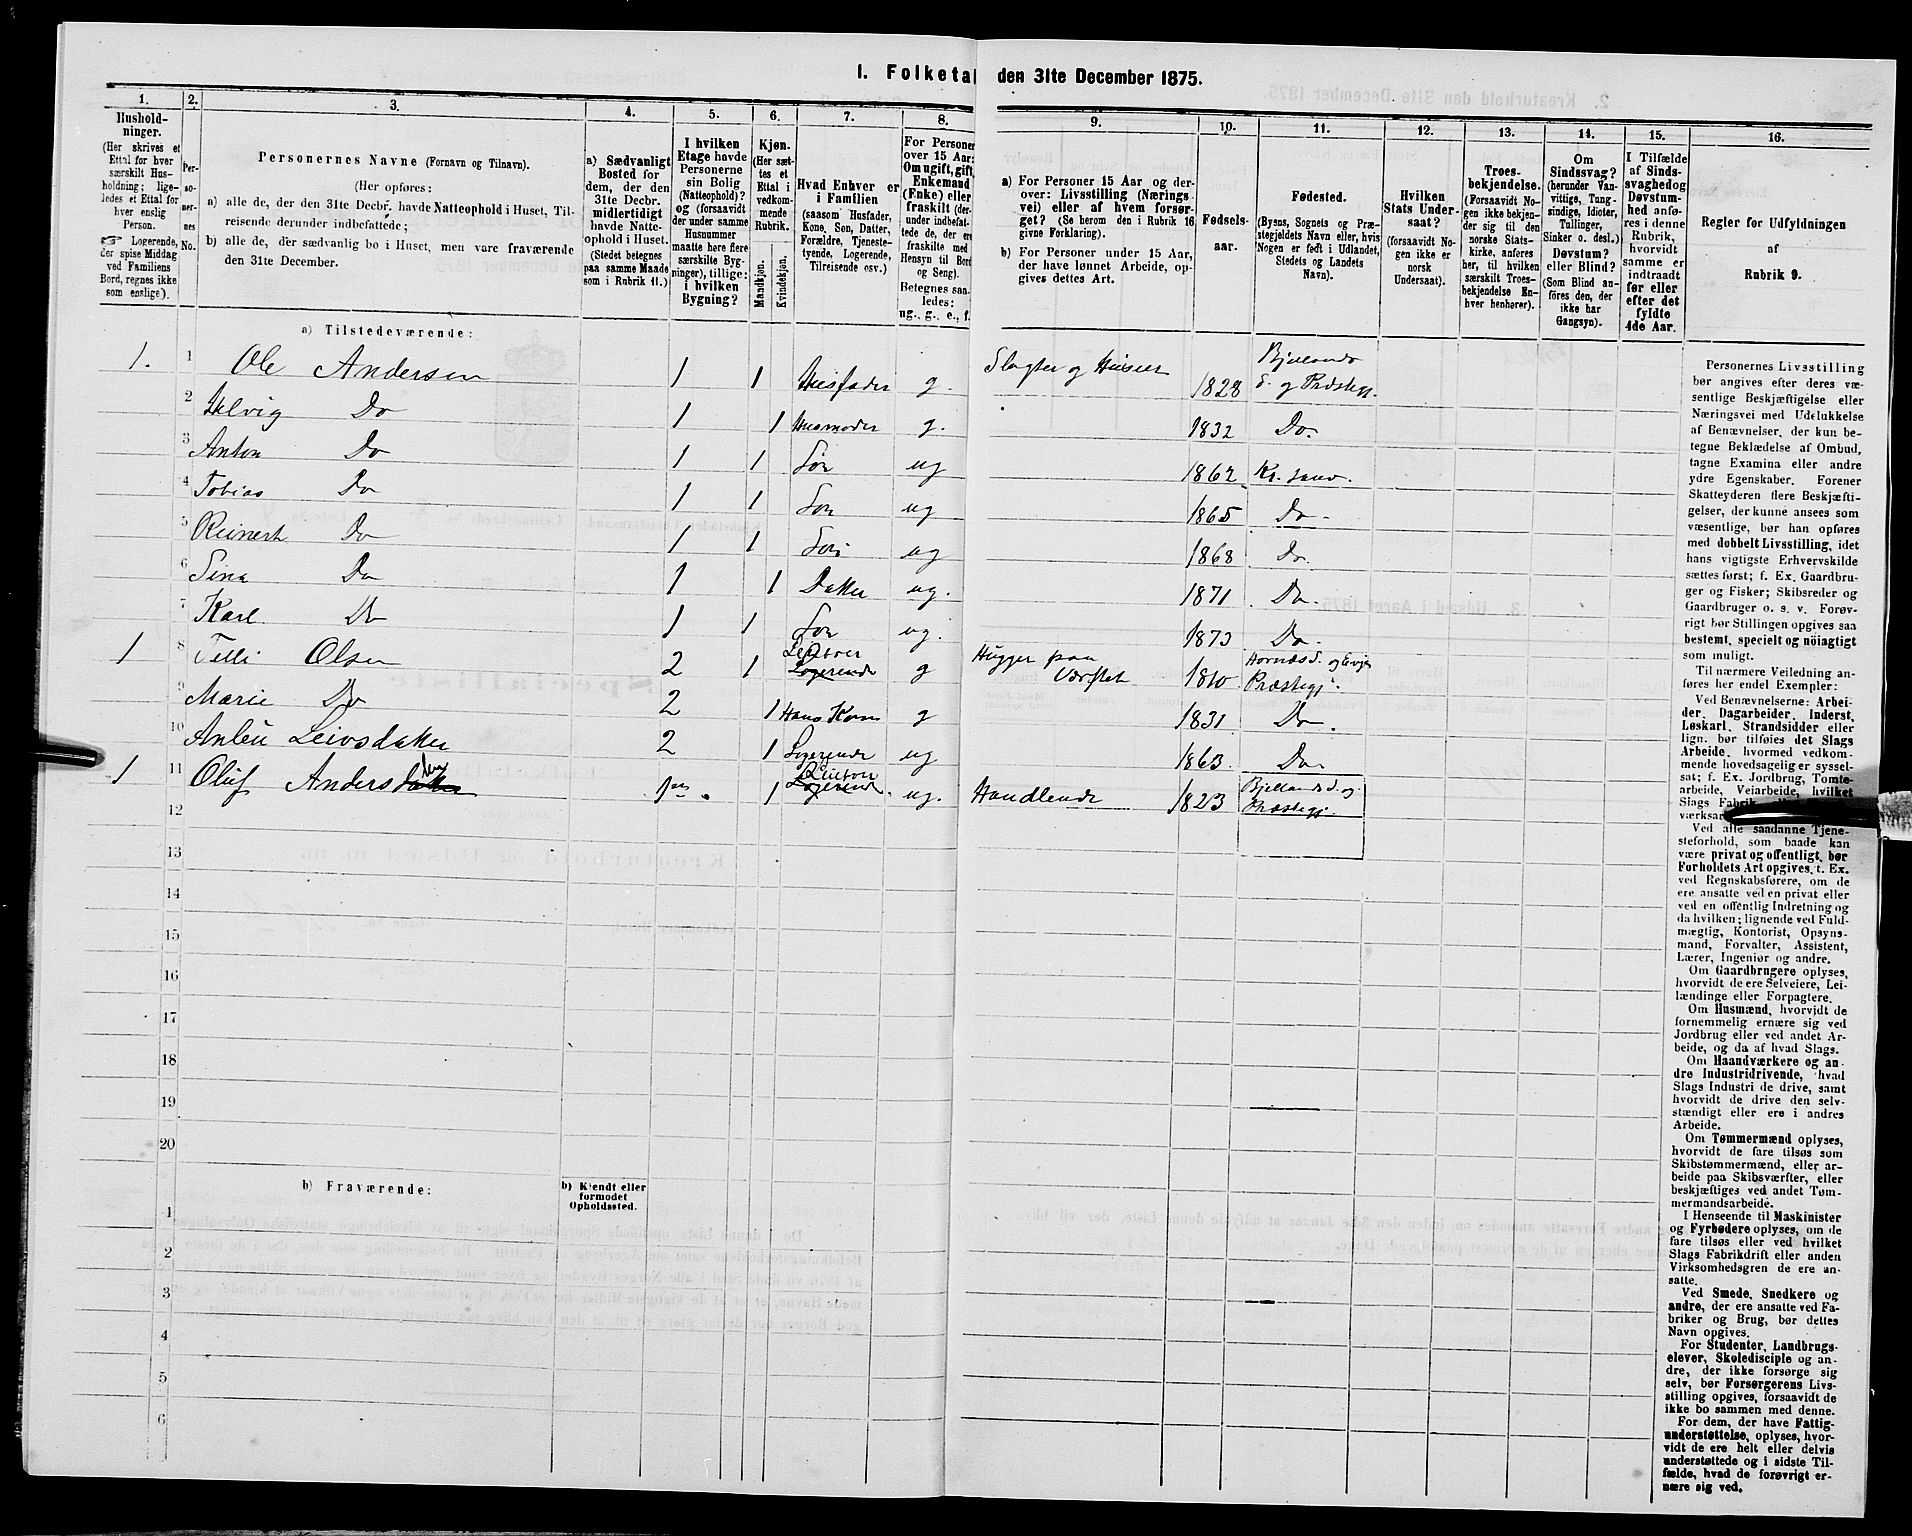 1. Folketal den 31te December 1875.
1. 2. 3. 4. 5. 6. 7. 8. 9. 10. 11. 12. 13. 14. 15. 16.
Hushold-
ninger.
(Her skrives et
Ettal for hver
særskilt Hus-
holdning; lige-
ledes et Ettal for
hver enslig
Person.
Logerende,
der spise Middag
ved Familiens
Bord, regnes ikke
som enslige).
Per-
so-
ner-
nes
No.
Personernes Navne (Fornavn og Tilnavn).
(Her opføres:
a) alle de, der den 31te Decbr. havde Natteophold i Huset, Til-
reisende derunder indbefattede;
b) alle de, der sædvanlig bo i Huset, men vare fraværende
den 31te December.
a) Sædvanligt
Bosted for
dem, der den
31te Decbr.
midlertidigt
havde Natte-
ophold i Huset.
(Stedet betegnes
paa samme Maade
som i Rubrik 11.)
I hvilken
Etage havde
Personerne
sin Bolig
(Natteophold)?
og (forsaavidt
der under samme
Husnummer
maatte høre flere
særskilte Byg-
ninger), tillige:
i hvilken
Bygning?
Kjøn.
(Her sæt-
tes et
Ettal i
vedkom-
mende
Rubrik.
Mandkjøn.
Kvindekjøn.
Hvad Enhver er
i Familien
(saasom Husfader,
Kone, Søn, Datter,
Forældre, Tjeneste-
tyende, Logerende,
Tilreisende osv.)
For Personer
over 15 Aar:
Om ugift, gift,
Enkemand
(Enke) eller
fraskilt (der-
under indbefat-
tede de, der ere
fraskilte med
Hensyn til Bord
og Seng).
Betegnes saa-
ledes:
ug., g., e., f.
a) For Personer 15 Aar og der-
over: Livsstilling (Nærings-
vei) eller af hvem forsør-
get? (Se herom den i Rubrik 16
givne Forklaring).
b) For Personer under 15 Aar,
der have lønnet Arbeide, op-
gives dettes Art.
Fødsels-
aar.
Fødested.
(Byens, Sognets og Præ-
stegjeldets Navn eller, hvis
Nogen er født i Udlandet,
Stedets og Landets
Navn).
Hvilken
Stats Under-
saat?
(forsaavidt No-
gen ikke er
norsk
Undersaat).
Troes-
bekjendelse.
(Forsaavidt No-
gen ikke bekjen-
der sig til den
norske Stats-
kirke, anføres
her, til hvilken
særskilt Troes-
bekjendelse En-
hver henhører).
Om
Sindssvag?
(herunder Van-
vittige, Tung-
sindige, Idioter,
Tullinger,
Sinker o. desl.)
Døvstum?
eller Blind?
(Som Blind an-
føres den, der
ikke har
Gangsyn).
I Tilfælde
af Sinds-
svaghed og
Døvstum-
hed anfø-
res i denne
Rubrik,
hvorvidt
samme er
indtraadt
før eller
efter det
fyldte
4de Aar.
Regler for Udfyldningen
af
Rubrik 9.
a) Tilstedeværende:
1. 1 Ole Andersen 1 1 Husfader g. Slagter og Huseier 1828 Bjellands S. og Præstegj.
2 Helvig Do 1 1 Husmoder g. 1832 Do.
3 Anton Do 1 1 Søn ug 1862 Kr. sand.
4 Tobias Do 1 1 Søn ug 1865 Do.
5 Reinert Do 1 1 Søn ug 1868 Do.
6 Sina Do 1 1 Datter ug. 1871 Do.
7 Karl Do 1 1 Søn ug. 1873 Do.
1 8 Telli Olsen 2 1 Logerende g Hugger paa Værftet 1810 Hornæs S. og Evje Præstegj.
9 Marie Do 2 1 Hans Kone g 1831 Do.
10 Leivsdatter 2 1 Logerende ug 1863 Do.
1 11 Oluf Andersdatter 1 Logerende ug. Handlende 1823 Bjellands S. og Præstegj.
12
13
14
15
16
17
18
19
20
b) Fraværende:
b) Kjendt eller
formodet
Opholdssted.
1
2
3
4
5
6
Personernes Livsstilling
bør angives efter deres væ-
sentlige Beskjæftigelse eller
Næringsvei med Udelukkelse
af Benævnelser, der kun be-
tegne Beklædelse af Ombud,
tagne Examina eller andre
ydre Egenskaber. Forener
Skatteyderen flere Beskjæfti-
gelser, der kunne ansees som
væsentlige, bør han opføres
med dobbelt Livsstilling, idet
hans vigtigste Erhvervskilde
sættes først; f. Ex. Gaardbru-
ger og Fisker; Skibsreder og
Gaardbruger o. s. v. Forøv-
rigt bør Stillingen opgives saa
bestemt, specielt og nöiagtigt
som muligt.
Til nærmere Veiledning an-
føres her endel Exempler:
Ved Benævnelserne: Arbei-
der, Dagarbeider, Inderst,
Løskarl, Strandsidder eller
lign. bør tilføies det Slags
Arbeide, hvormed vedkom-
mende hovedsagelig er syssel-
sat; f. Ex. Jordbrug, Tomte-
arbeide, Veiarbeide, hvilket
Slags
Ved alle saadanne Tjene-
steforhold, som baade kan
være privat og offentligt, bør
Forholdets Art opgives, t. Ex.
ved Regnskabsførere, om de
ere ansatte ved en privat eller
ved en offentlig Indretning og
da hvilken; lignende ved Fuld-
mægtig, Kontorist, Opsyns-
mand, Forvalter, Assistent,
Lærer, Ingeniør og andre.
Om Gaardbrugere oplyses,
hvorvidt de ere Selveiere, Lei-
lændinge eller Forpagtere.
Om Husmænd, hvorvidt de
fornemmelig ernære sig ved
Jordbrug eller ved andet Ar-
beide, og da af hvad Slags.
Om Haandværkere og an-
dre Industridrivende, hvad
Slags Industri de drive, samt
hvorvidt de drive den selv-
stændigt eller ere i andres
Arbeide.
Om Tømmermænd oplyses,
hvorvidt de fare tilsøs som
Skibstømmermænd, eller ar-
beide paa Skibsværfter, eller
beskjæftiges ved andet Tøm-
mermandsarbeide.
I Henseende til Maskinister
og Fyrbødere oplyses, om de
fare tilsøs eller ved hvilket
Slags Fabrikdrift eller anden
Virksomhedsgren de ere an-
satte.
Ved Smede, Snedkere og
andre, der ere ansatte ved Fa-
briker og Brug, bør dettes
Navn opgives.
For Studenter, Landbrugs-
elever, Skoledisciple og an-
dre, der ikke forsørge sig
selv, bør Forsørgerens Livs-
stilling opgives, forsaavidt de
ikke bo sammen med denne.
For dem, der have Fattig-
understøttelse, oplyses, hvor-
vidt de ere helt eller delvis
understøttede og i sidste Til-
fælde, hvad de forøvrigt er-
nære sig ved.